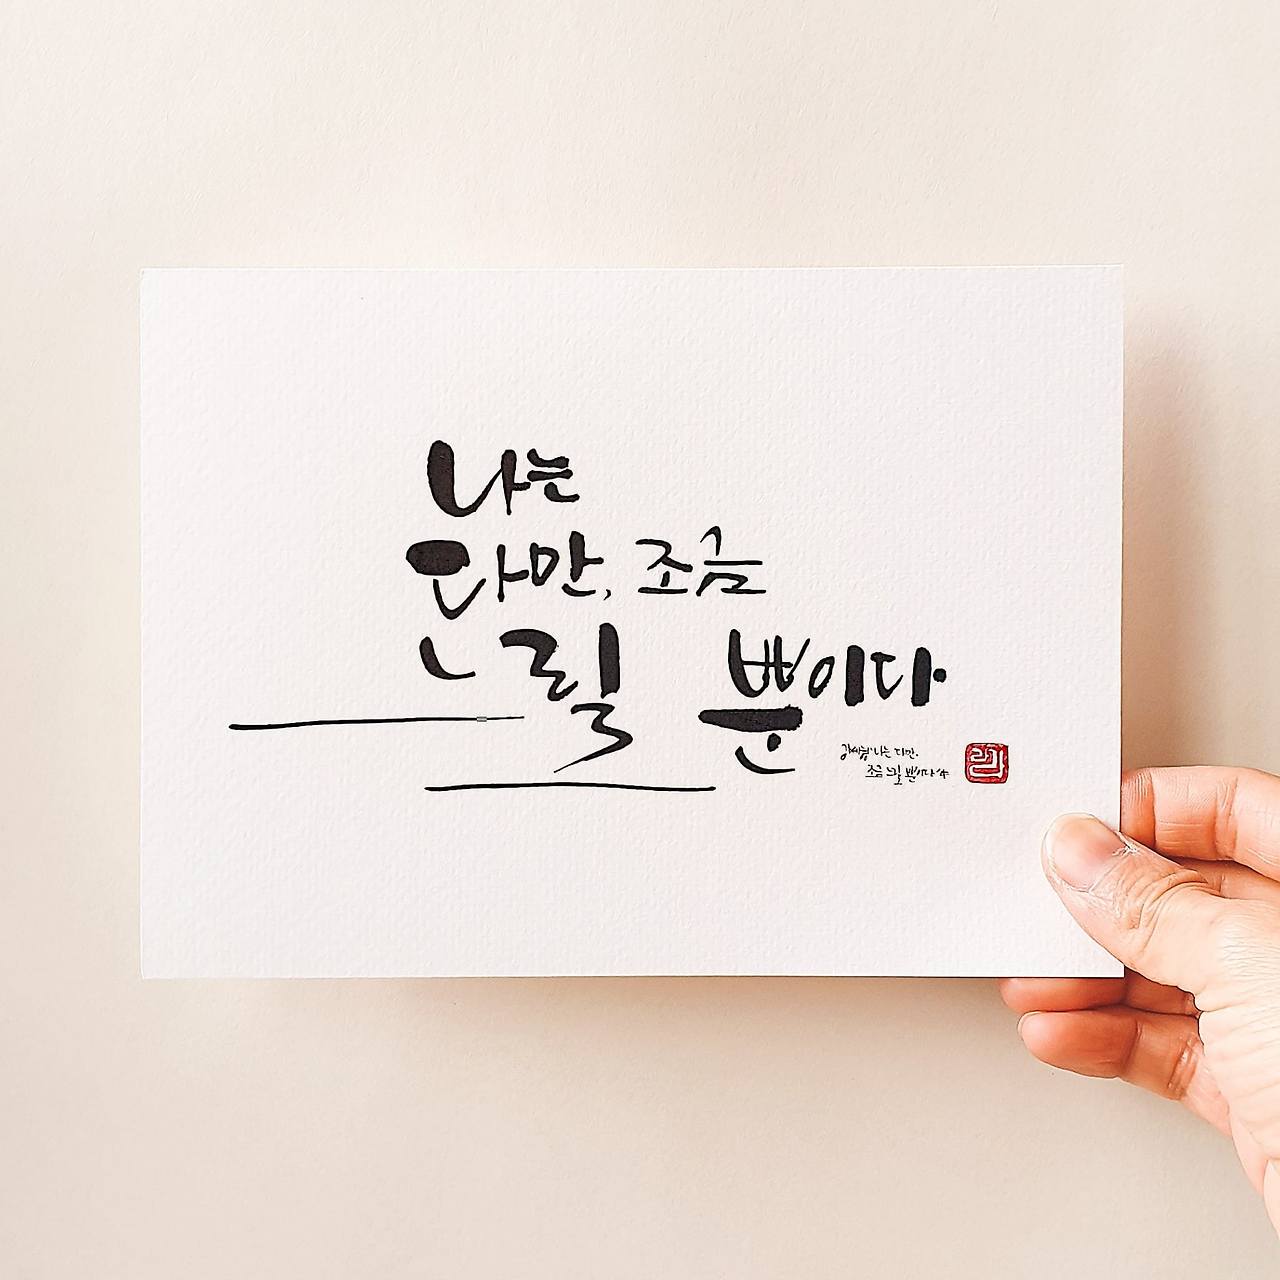 나는
다만, 조금
느릴 뿐이다.
강세형 '나는 다만,
조금 느릴 뿐이다' 中